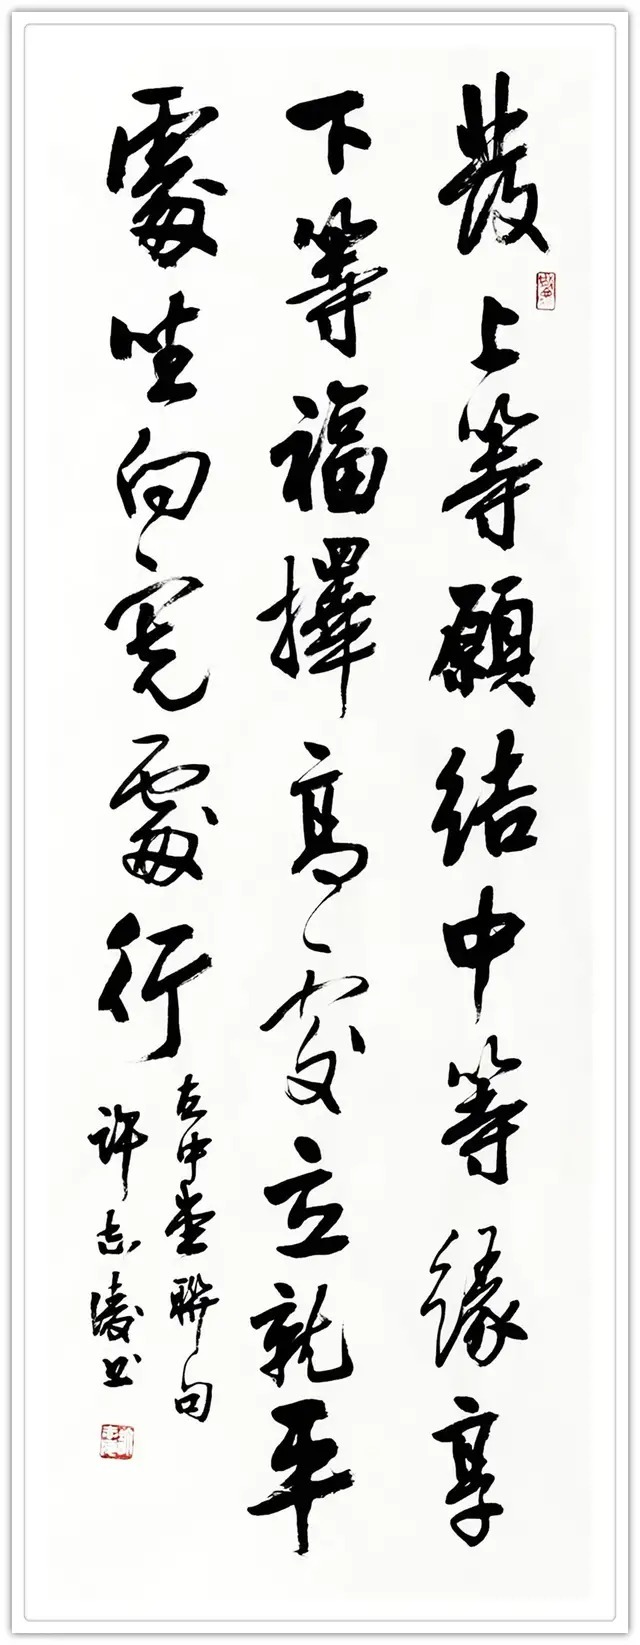 發上等願結中等緣享
下等福擇高處立就平
處坐向寬處行
左中堂聯句
許志淩书